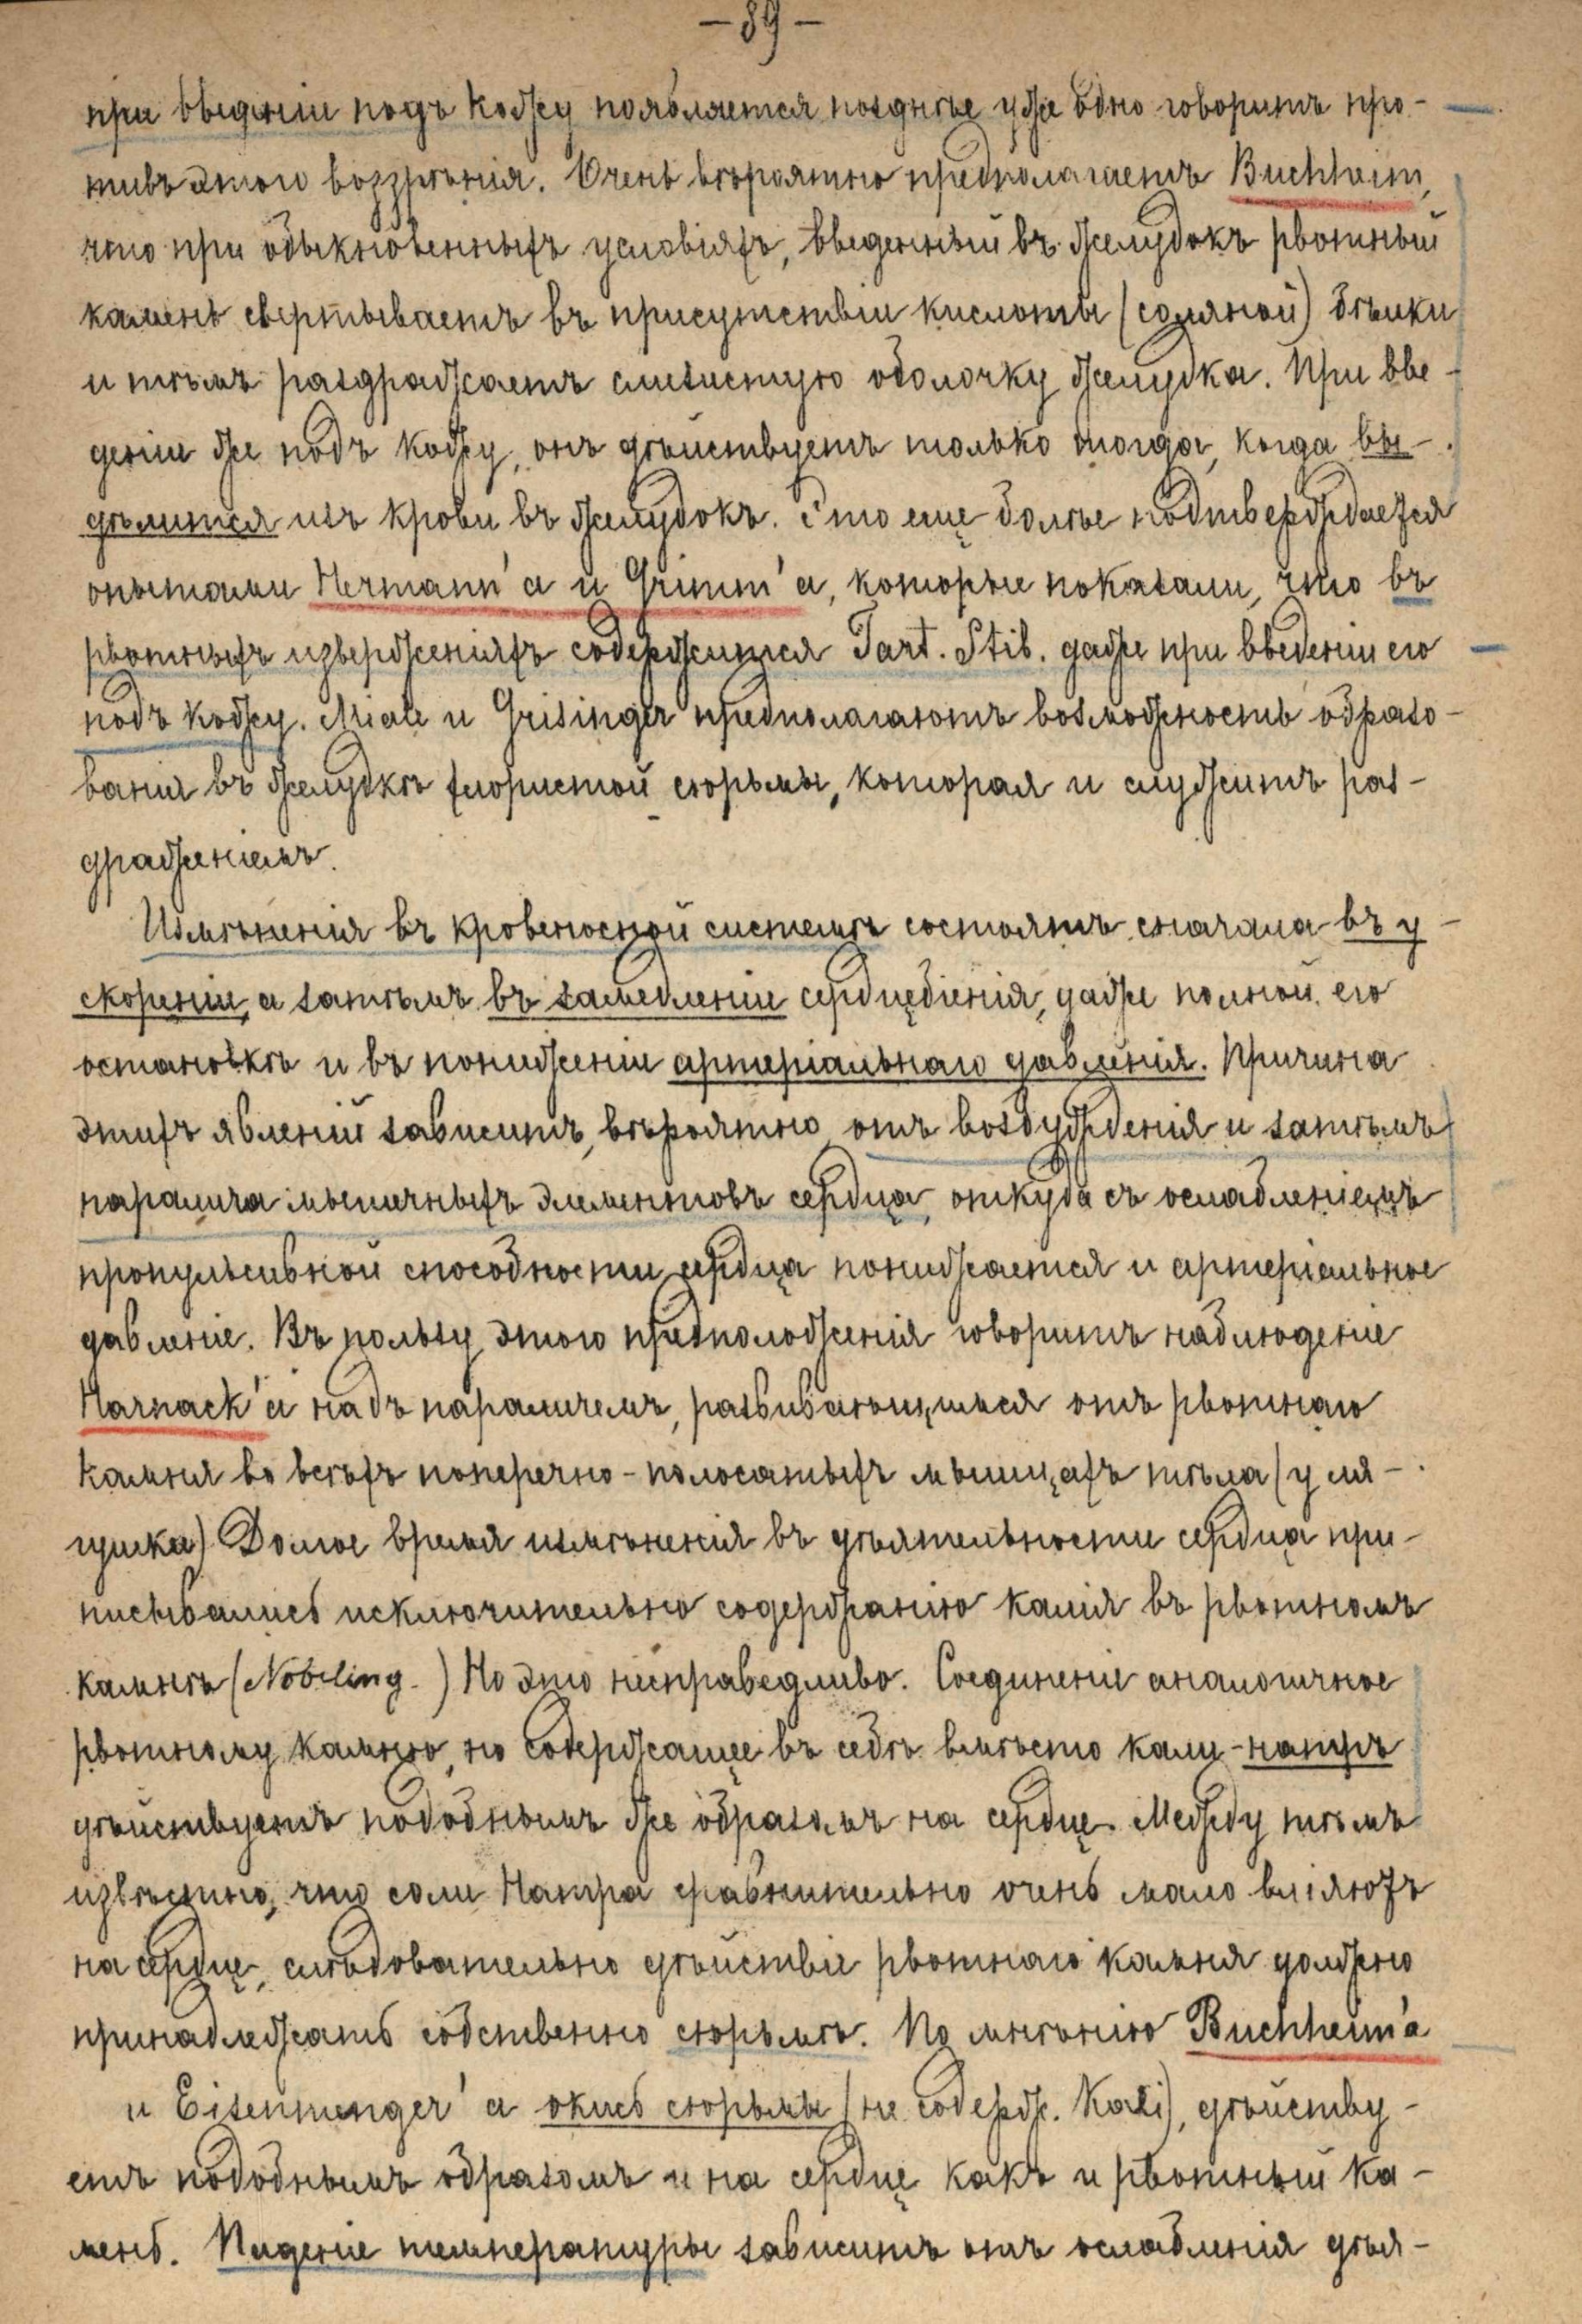 — 89 —
при введеніи подъ кожу появляется позднѣе уже одно говоритъ про-
тивъ этого воззрѣнія. Очень вѣроятно предполагаетъ Buchheim,
что при обыкновенныхъ условіяхъ, введенный въ желудокъ рвотный
камень свертываетъ въ присутствіи кислоты (соляной) бѣлки
и тѣмъ раздражаетъ слизистую оболочку желудка. При вве-
деніи же подъ кожу, онъ дѣйствуетъ только тогда, когда вы-
дѣлится изъ крови въ желудокъ. Это еще болѣе подтверждается
опытами Hermann'а и Grimm'а, которые показали, что въ
рвотныхъ изверженіяхъ содержится Tart. Stib. даже при введеніи его
подъ кожу. Miale и Grisinger предполагаютъ возможность образо-
ванія въ желудкѣ хлористой сюрьмы, которая и служитъ раз-
драженіемъ.
Измѣненія въ кровеносной системѣ состоятъ сначала въ у-
скореніи, а затѣмъ въ замедленіи сердцебіенія, даже полной его
остановкѣ и въ пониженіи артеріальнаго давленія. Причина
этихъ явленій зависитъ, вѣроятно, отъ возбужденія и затѣмъ
паралича мышечныхъ элементовъ сердца, откуда съ ослабленіемъ
пропульсивной способности сердца понижается и артеріальное
давленіе. Въ пользу этого предположенія говоритъ наблюденіе
Harnack'а надъ параличемъ, развивающимся отъ рвотнаго
камня во всѣхъ поперечно-полосатыхъ мышцахъ тѣла (у ля-
гушка) Долгое время измѣненія въ дѣятельности сердца при-
писывались исключительно содержанію калія въ рвотномъ
камнѣ (Nobiling.) Но это несправедливо. Соединеніе аналогичное
рвотному камню, но содержащее въ себѣ вмѣсто кали-натръ
дѣйствуетъ подобнымъ же образомъ на сердце. Между тѣмъ
извѣстно, что соли Натра сравнительно очень мало вліяютъ
на сердце, слѣдовательно дѣйствіе рвотнаго камня должно
принадлежать собственно сюрьмѣ. По мнѣнію Buchheim'а
и Eisenmenger'а окись сюрьмы (не содерж. Kali), дѣйству-
етъ подобнымъ образомъ и на сердце какъ и рвотный ка-
мень. Паденіе температуры зависитъ отъ ослабленія дѣя-